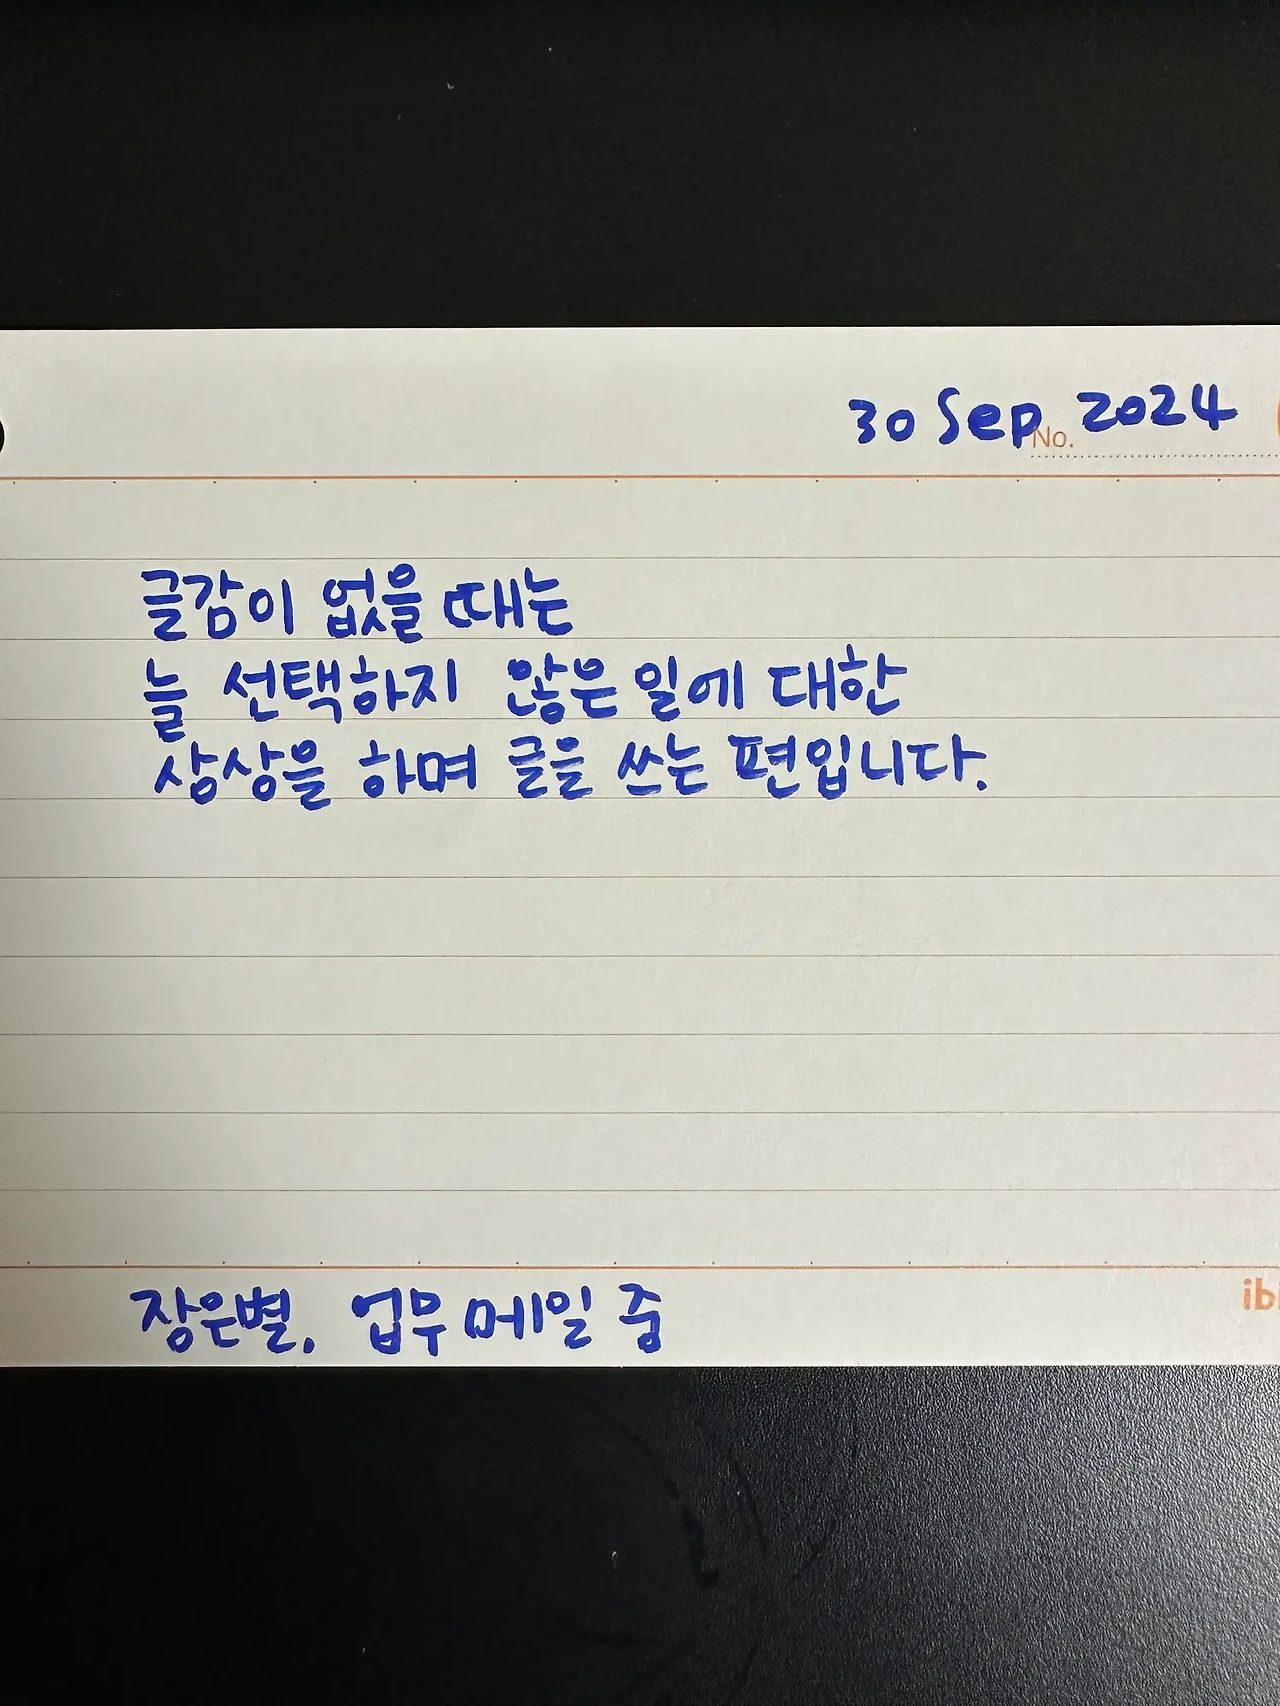 30 Sep 2024
No.
글감이 없을 때는
늘 선택하지 않은 일에 대한
상상을 하며 글을 쓰는 편입니다.
장은별, 업무 메일 중
ib